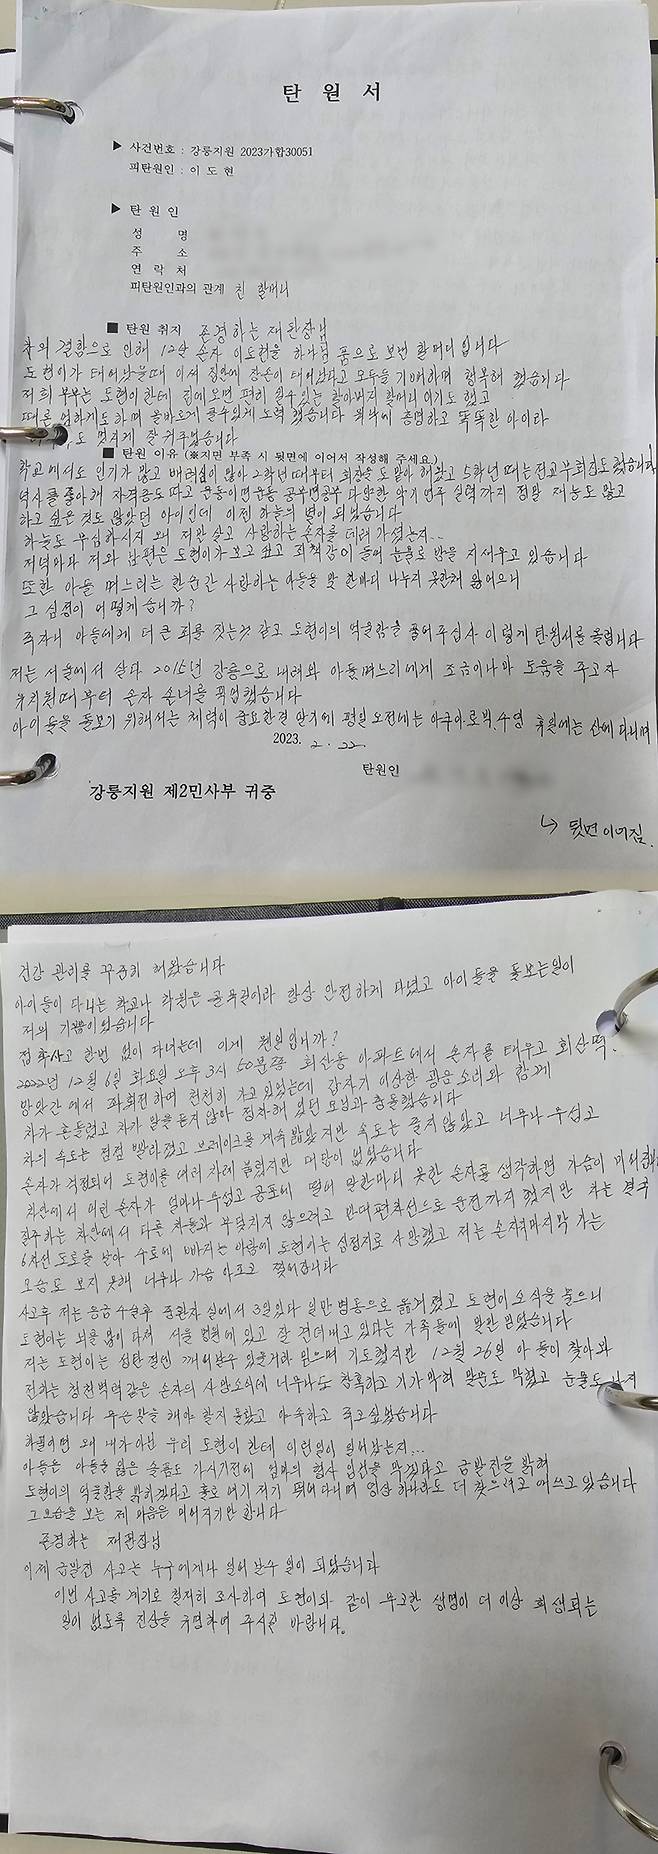 탄 원 서
▶ 사건번호 : 강릉지원 2023가합30051
피탄원인 : 이 도 현
▶ 탄 원 인
성 명
주 소
연 락 처
피탄원인과의 관계 친 할머니
■ 탄원 취지 존경하는 재판장님
차의 결함으로 인해 12살 손자 이도현을 하나님 품으로 보낸 할머니입니다
도현이가 태어났을때 이씨 집안에 장손이 태어났다고 모두들 기뻐하며 행복해 했습니다
저희 부부는 도현이한테 집에오면 편히 쉴수있는 할아버지 할머니 이기도 했고
때론 엄하게도하며 올바르게 클수있게 노력 했습니다 워낙에 총명하고 똑똑한 아이라
도 멋지게 잘 커주었습니다
■ 탄원 이유 (※지면 부족 시 뒷면에 이어서 작성해 주세요.)
학교에서도 인기가 많고 배려심이 많아 2학년때부터 회장을 도맡아 해왔고 5학년때는 전교부회장도 했습니다
역사를 좋아해 자격증도 따고 운동이면운동 공부면공부 다양한 악기 연주 실력까지 정말 재능도 많고
하고 싶은 것도 많았던 아이인데 이젠 하늘의 별이 되었습니다
하늘도 무심하시지 왜 저만 살고 사랑하는 손자를 데려 가셨는지..
저녁마다 저와 남편은 도현이가 보고 싶고 죄책감이 들어 눈물로 밤을 지새우고 있습니다
또한 아들 며느리는 한순간 사랑하는 아들을 말 한마디 나누지 못한채 잃었으니
그 심정이 어떻게습니까?
죽자니 아들에게 더 큰 죄를 짓는것 같고 도현이의 억울함을 풀어 주십사 이렇게 탄원서를 올립니다
저는 서울에서 살다 2015년 강릉으로 내려와 아들며느리에게 조금이나마 도움을 주고자
유치원때부터 손자 손녀를 픽업했습니다
아이들을 돌보기 위해서는 체력이 중요한걸 알기에 평일 오전에는 아쿠아로빅, 수영 휴일에는 산에 다니며
2023. 2. 22
탄원인
강릉지원 제2민사부 귀중
↳ 뒷면 이어짐.
건강 관리를 꾸준히 해왔습니다
아이들이 다니는 학교나 학원은 골목길이라 항상 안전하게 다녔고 아이들을 돌보는일이
저의 기쁨이었습니다
접촉사고 한번 없이 다녔는데 이게 웬일입니까?
2022년 12월 6일 화요일 오후 3시 50분쯤 회산동 아파트에서 손자를 태우고 회산떡
방앗간에서 좌회전하며 천천히 가고있었는데 갑자기 이상한 굉음 소리와 함께
차가 흔들렸고 차가 말을 듣지 않아 정차해 있던 모닝과 충돌했습니다
차의 속도는 점점 빨라졌고 브레이크를 계속 밟았지만 속도는 줄지않았고 너무나 무섭고
손자가 걱정되어 도현이를 여러 차례 불렀지만 대답이 없었습니다
차안에서 어린 손자가 얼마나 무섭고 공포에 떨어 말한마디 못한 손자를 생각하면 가슴이 미어집니다
질주하는 차안에서 다른 차들과 부딪치지 않으려고 반대편차선으로 운전까지 했지만 차는 결국
6차선 도로를 날아 수로에 빠지는 바람에 도현이는 심정지로 사망했고 저는 손자의마지막 가는
모습도 보지 못해 너무나 가슴 아프고 찢어집니다
사고후 저는 응급 수술후 중환자 실에서 3일있다 일반 병동으로 옮겨 졌고 도현이 소식을 물으니
도현이는 뇌를 많이 다쳐 서울 병원에 있고 잘 견뎌내고 있다는 가족들에 말만 믿었습니다
저는 도현이는 심탄절엔 깨어날수 있을거라 믿으며 기도했지만 12월 26일 아들이 찾아와
전하는 청천벽력같은 손자의 사망소식에 너무나도 참혹하고 기가 막혀 말문도 막혔고 눈물도 나지
않았습니다 무슨말을 해야 할지 몰랐고 야속하고 죽고싶었습니다
하필이면 왜 내가아닌 우리 도현이 한테 이런일이 일어났는지...
아들은 아들을 잃은 슬픔도 가시기전에 엄마의 형사 입건을 막겠다고 급발진을 밝혀
도현이의 억울함을 밝히겠다고 홀로 여기 저기 뛰어다니며 영상 하나라도 더 찾으려고 애쓰고 있습니다
그모습을 보는 제 마음은 미어지기만 합니다
존경하는 재판장님
이제 급발진 사고는 누구에게나 일어 날수 일이 되었습니다
이번 사고를 계기로 철저히 조사하여 도현이와 같이 무고한 생명이 더 이상 희생되는
일이 없도록 진상을 규명하여 주시길 바랍니다.